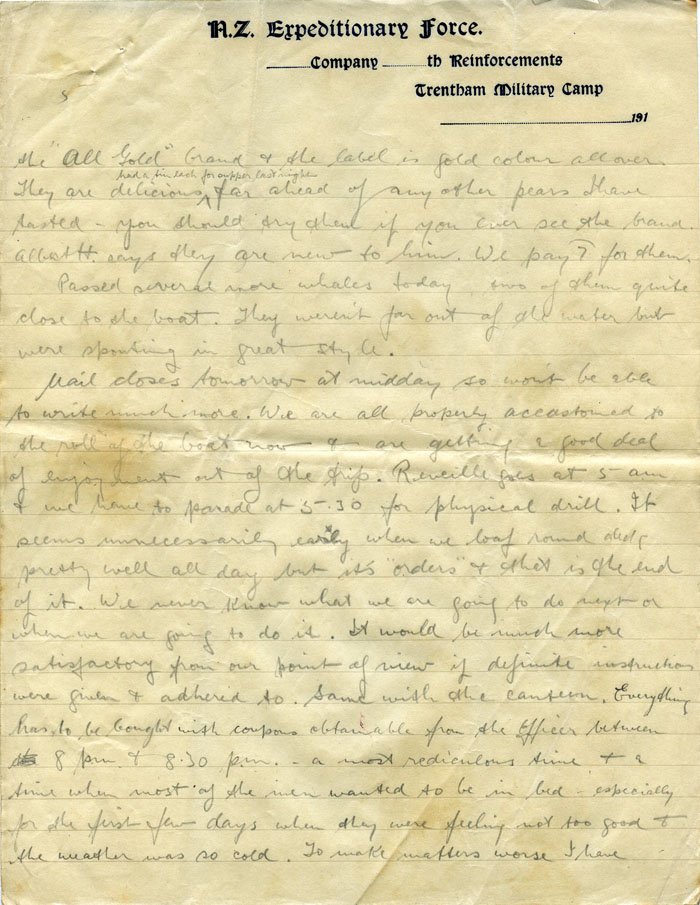 N.Z. Expeditionary Force.
Company th Reinforcements
Trentham Military Camp
191
the "All Gold" brand & the label is gold colour all over.
had a tin each for supper last night
They are delicious, far ahead of any other pears I have
tasted - you should try them if you ever see the brand.
Albert H. says they are new to him. We pay for them.
Passed several more whales today, two of them quite
close to the boat. They weren't far out of the water but
were spouting in great style.
Mail closes tomorrow at midday so won't be able
to write much more. We are all properly accastomed to
the roll of the boat now & are getting a good deal
of enjoyment out of the trip. Reveille goes at 5 am
& we have to parade at 5.30 for physical drill. It
seems unnecessarily early when we loaf round deck
pretty well all day but it's "orders" & that is the end
of it. We never know what we are going to do next or
when we are going to do it. It would be much more
satisfactory from our point of view if definite instructions
were given & adhered to. Same with the canteen. Everything
has to be bought with coupons obtainable from the Officer between
8 p.m. & 8.30 p.m. - a most rediculous time & a
time when most of the men wanted to be in bed - especially
for the first few days when they were feeling not too good &
the weather was so cold. To make matters worse I have